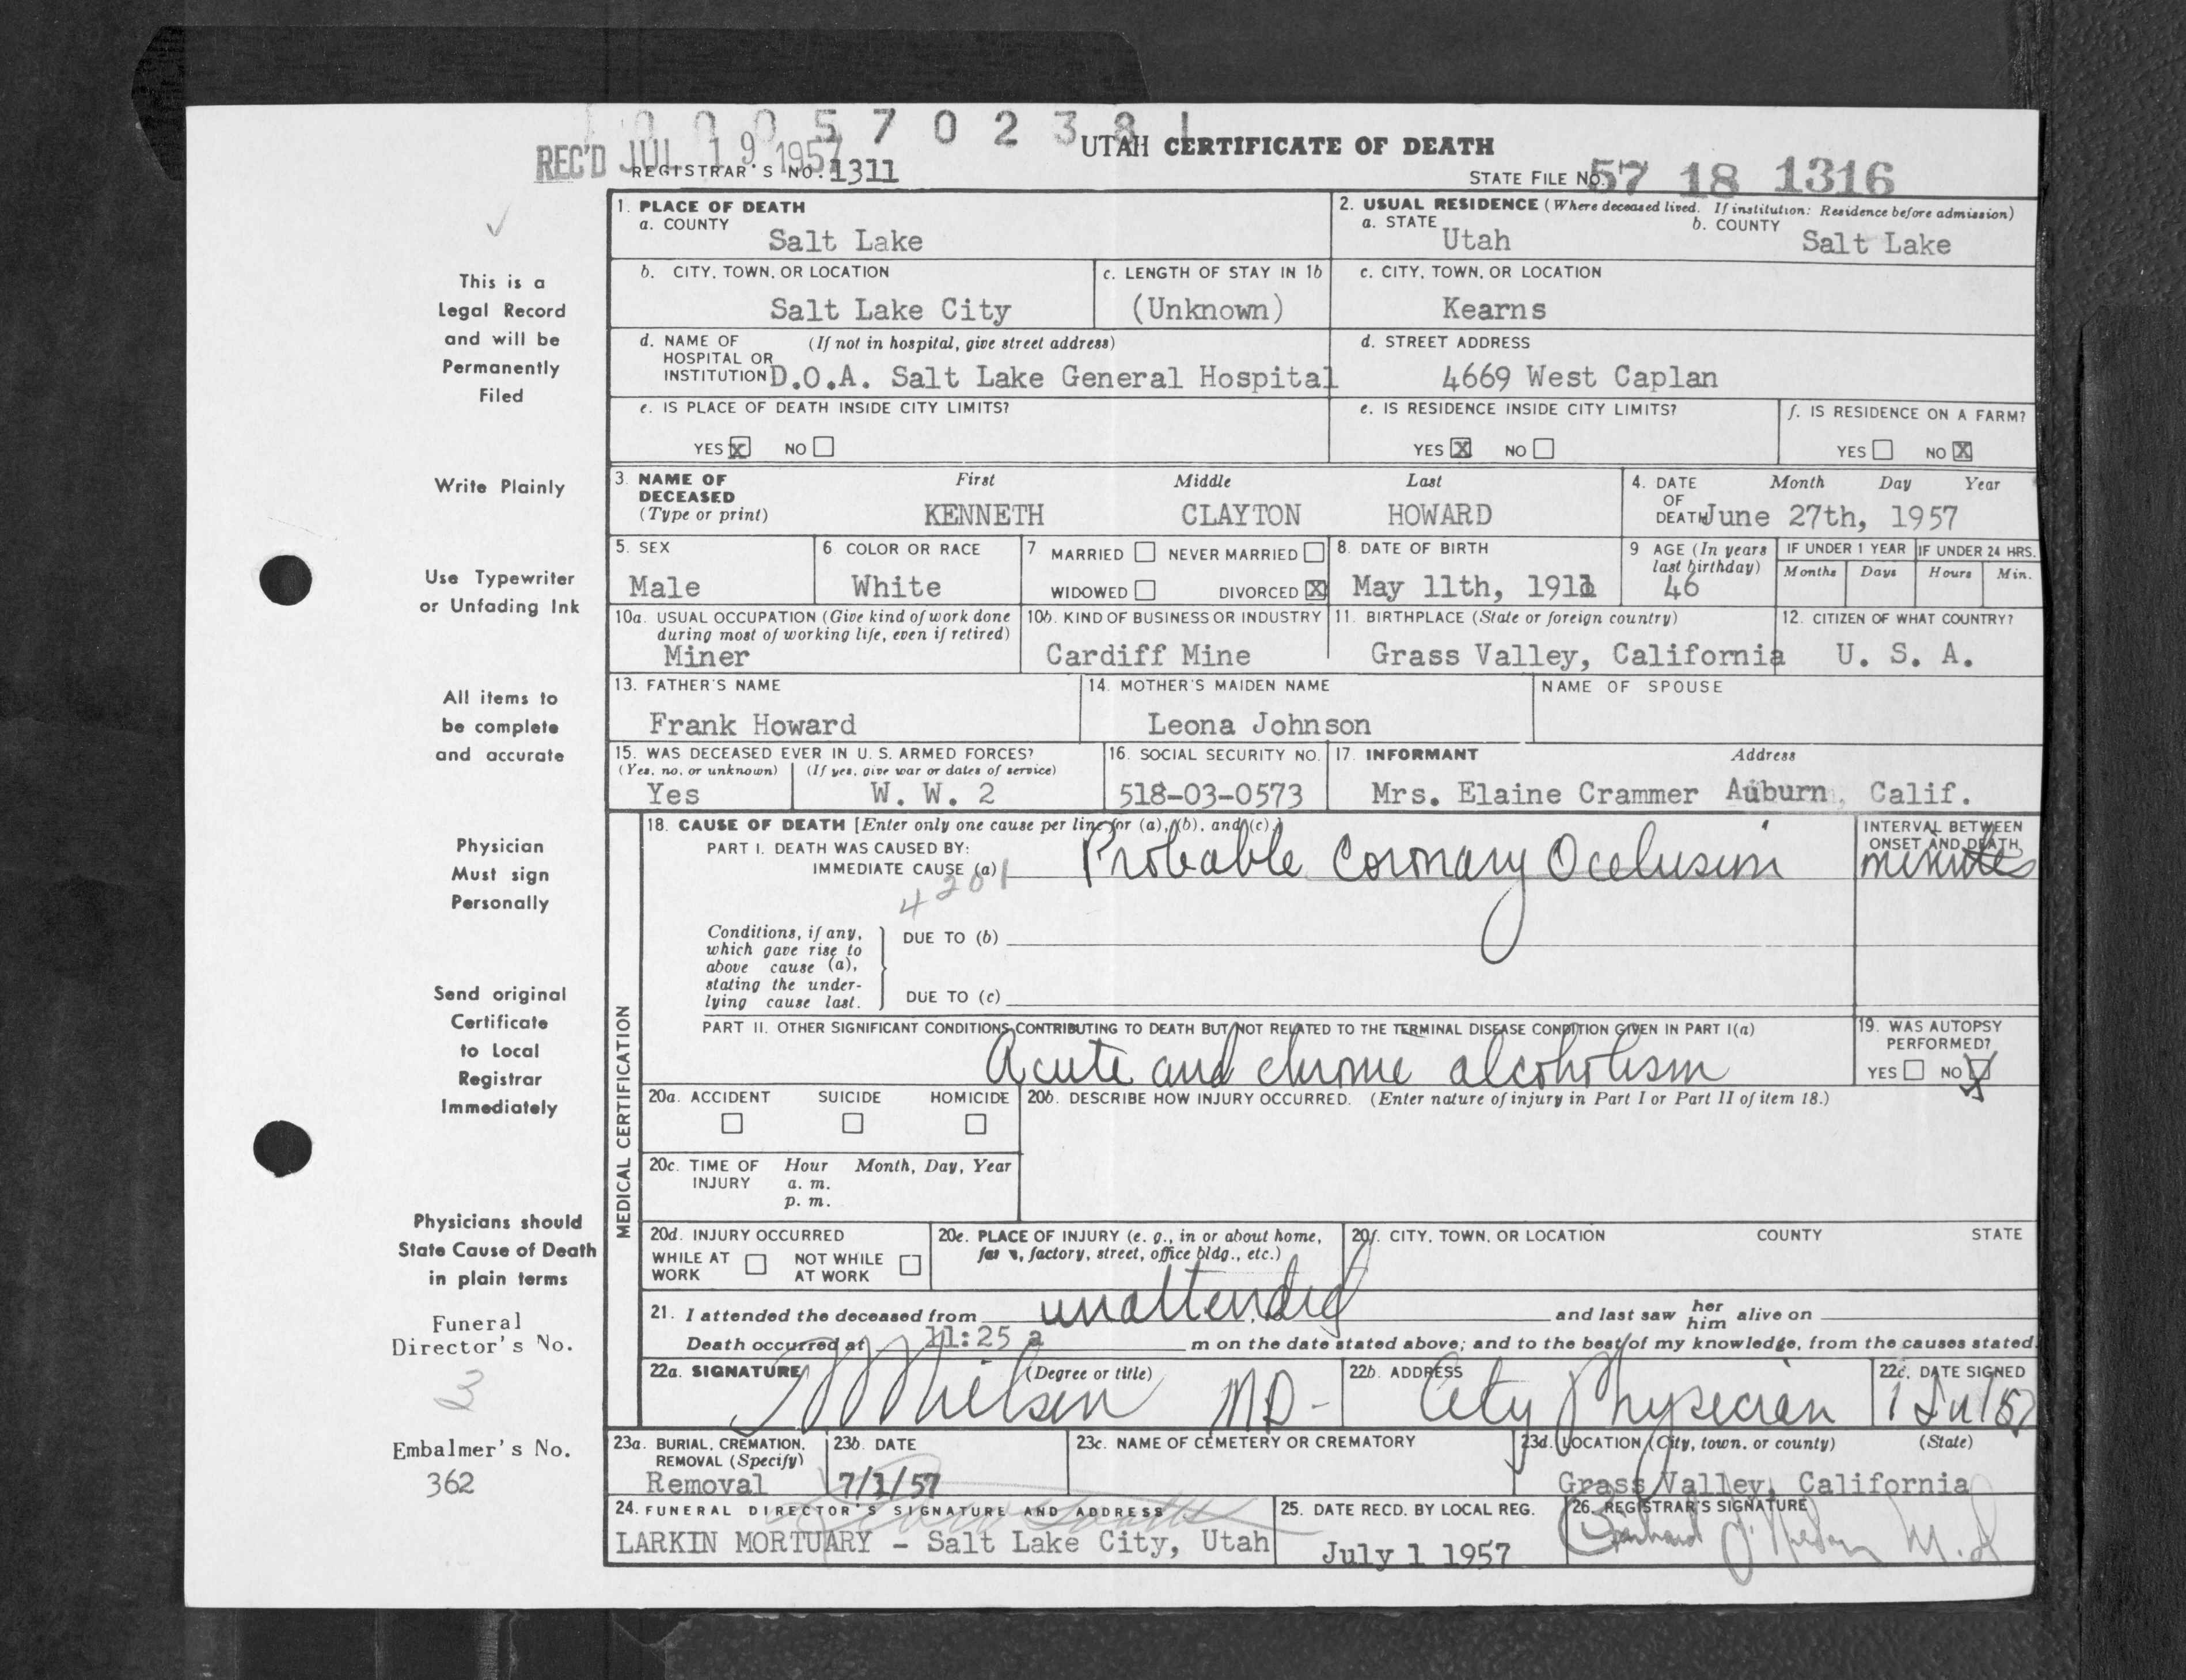 10005702381
UTAH CERTIFICATE OF DEATH
REC'D JUL 19 1957
REGISTRAR'S NO. 1311
STATE FILE NO. 57 18 1316
This is a
Legal Record
and will be
Permanently
Filed
Write Plainly
Use Typewriter
or Unfading Ink
All items to
be complete
and accurate
Physician
Must sign
Personally
Send original
Certificate
to Local
Registrar
Immediately
Physicians should
State Cause of Death
in plain terms
Funeral
Director's No.
3
Embalmer's No.
362
1. PLACE OF DEATH
a. COUNTY
Salt Lake
2. USUAL RESIDENCE (Where deceased lived. If institution: Residence before admission)
a. STATE Utah
b. COUNTY Salt Lake
b. CITY, TOWN, OR LOCATION
Salt Lake City
c. LENGTH OF STAY IN 1b
(Unknown)
c. CITY, TOWN, OR LOCATION
Kearns
d. NAME OF (If not in hospital, give street address)
HOSPITAL OR
INSTITUTION D.O.A. Salt Lake General Hospital
d. STREET ADDRESS
4669 West Caplan
e. IS PLACE OF DEATH INSIDE CITY LIMITS?
YES X NO
e. IS RESIDENCE INSIDE CITY LIMITS?
YES X NO
f. IS RESIDENCE ON A FARM?
YES NO X
3. NAME OF DECEASED (Type or print)
First Middle Last
KENNETH CLAYTON HOWARD
4. DATE OF DEATH Month Day Year
June 27th, 1957
5. SEX
Male
6 COLOR OR RACE
White
7 MARRIED NEVER MARRIED
WIDOWED DIVORCED X
8. DATE OF BIRTH
May 11th, 1911
9 AGE (In years last birthday)
46
IF UNDER 1 YEAR
Months Days
IF UNDER 24 HRS.
Hours Min.
10a. USUAL OCCUPATION (Give kind of work done
during most of working life, even if retired)
Miner
10b. KIND OF BUSINESS OR INDUSTRY
Cardiff Mine
11. BIRTHPLACE (State or foreign country)
Grass Valley, California
12. CITIZEN OF WHAT COUNTRY?
U. S. A.
13. FATHER'S NAME
Frank Howard
14. MOTHER'S MAIDEN NAME
Leona Johnson
NAME OF SPOUSE
15. WAS DECEASED EVER IN U. S. ARMED FORCES?
(Yes, no, or unknown) (If yes, give war or dates of service)
Yes W. W. 2
16. SOCIAL SECURITY NO.
518-03-0573
17. INFORMANT Address
Mrs. Elaine Crammer Auburn, Calif.
MEDICAL CERTIFICATION
18. CAUSE OF DEATH [Enter only one cause per line for (a), (b), and (c).]
PART I. DEATH WAS CAUSED BY:
IMMEDIATE CAUSE (a) Probable Coronary Occlusion
4201
INTERVAL BETWEEN
ONSET AND DEATH
minutes
Conditions, if any,
which gave rise to
above cause (a),
stating the under-
lying cause last.
DUE TO (b)
DUE TO (c)
PART II. OTHER SIGNIFICANT CONDITIONS CONTRIBUTING TO DEATH BUT NOT RELATED TO THE TERMINAL DISEASE CONDITION GIVEN IN PART I(a)
Acute and chronic alcoholism
19. WAS AUTOPSY
PERFORMED?
YES NO X
20a. ACCIDENT SUICIDE HOMICIDE
20b. DESCRIBE HOW INJURY OCCURRED. (Enter nature of injury in Part I or Part II of item 18.)
20c. TIME OF INJURY Hour Month, Day, Year
a. m.
p. m.
20d. INJURY OCCURRED
WHILE AT WORK NOT WHILE AT WORK
20e. PLACE OF INJURY (e. g., in or about home,
farm, factory, street, office bldg., etc.)
20f. CITY, TOWN, OR LOCATION COUNTY STATE
21. I attended the deceased from unattended and last saw her him alive on
Death occurred at 11:25 a m on the date stated above; and to the best of my knowledge, from the causes stated.
22a. SIGNATURE (Degree or title)
Nielsen MD-
22b. ADDRESS
City Physician
22c. DATE SIGNED
1 Jul 57
23a. BURIAL, CREMATION,
REMOVAL (Specify)
Removal
23b. DATE
7/1/57
23c. NAME OF CEMETERY OR CREMATORY
23d. LOCATION (City, town, or county) (State)
Grass Valley, California
24. FUNERAL DIRECTOR'S SIGNATURE AND ADDRESS
LARKIN MORTUARY - Salt Lake City, Utah
25. DATE RECD. BY LOCAL REG.
July 1 1957
26. REGISTRAR'S SIGNATURE
M.D